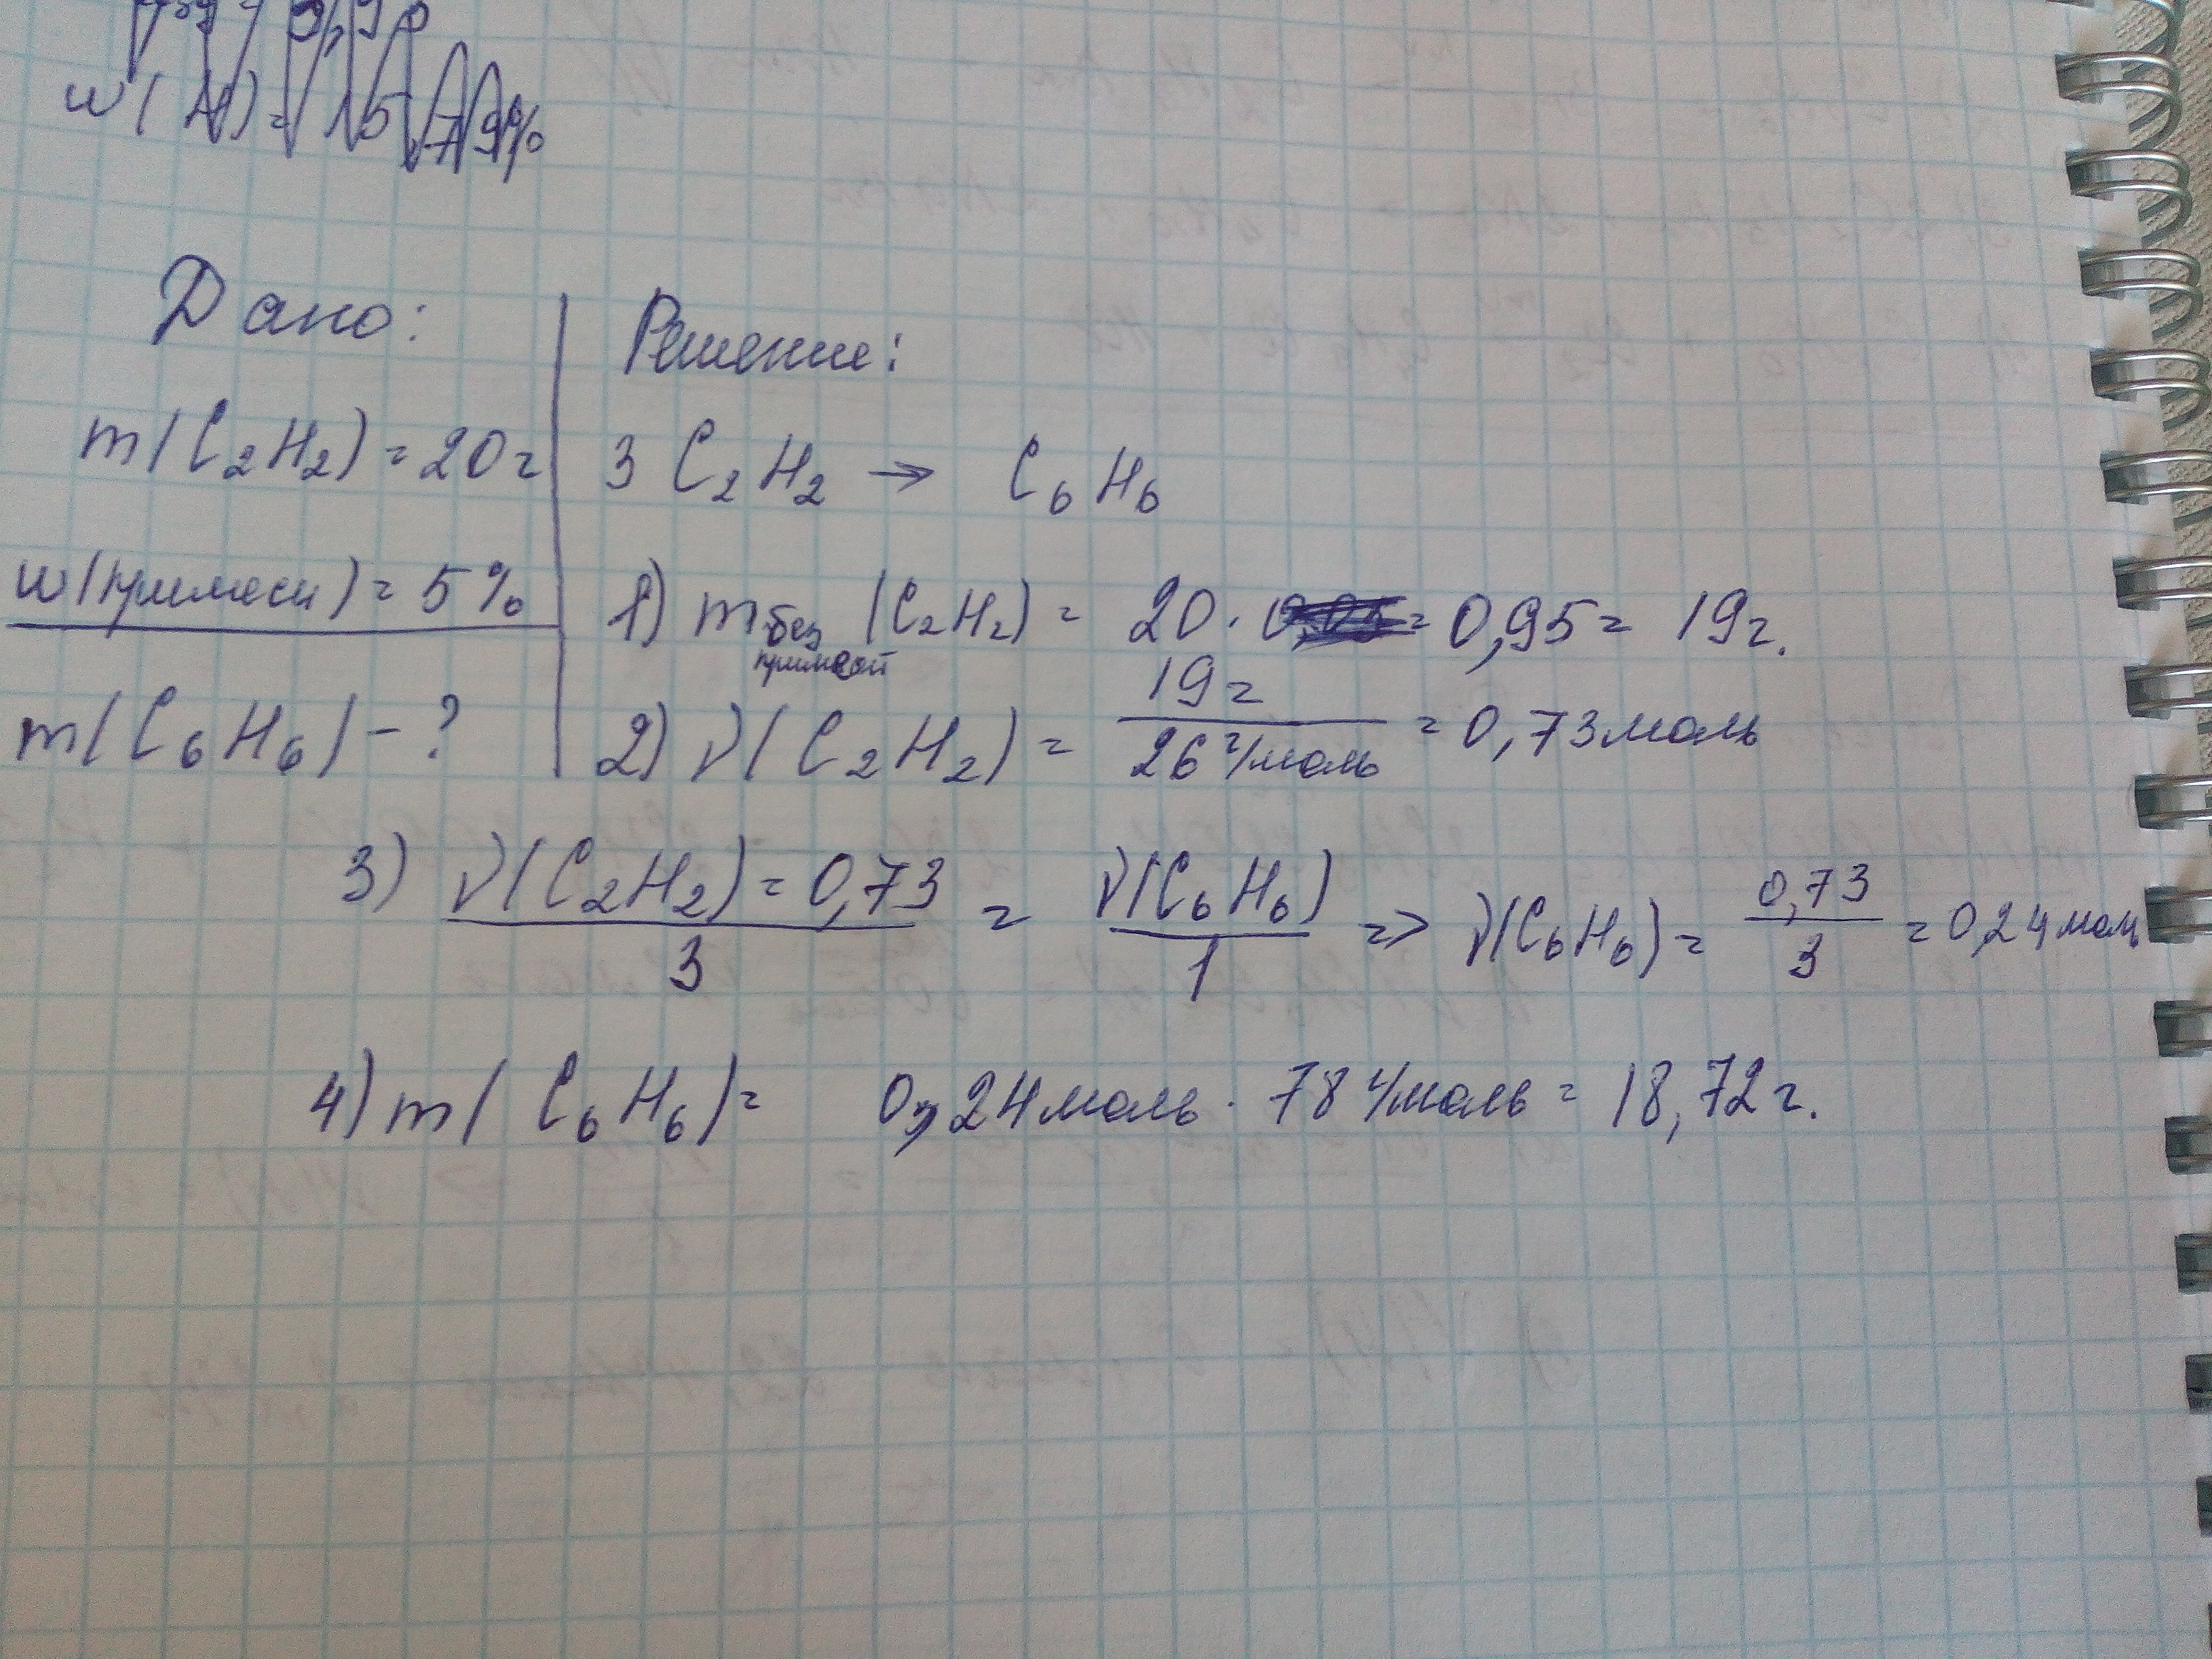 w(H)=15,79%
Дано:
m(C₂H₂)=20г
w(примеси)=5%
m(C₆H₆)-?
Решение:
3 C₂H₂ → C₆H₆
1) m без примесей (C₂H₂) = 20 · 0,95 = 19г.
2) ν(C₂H₂) = 19г / 26 г/моль = 0,73моль
3) ν(C₂H₂)=0,73 / 3 = ν(C₆H₆) / 1 => ν(C₆H₆) = 0,73 / 3 = 0,24моль
4) m(C₆H₆)= 0,24моль · 78 г/моль = 18,72г.